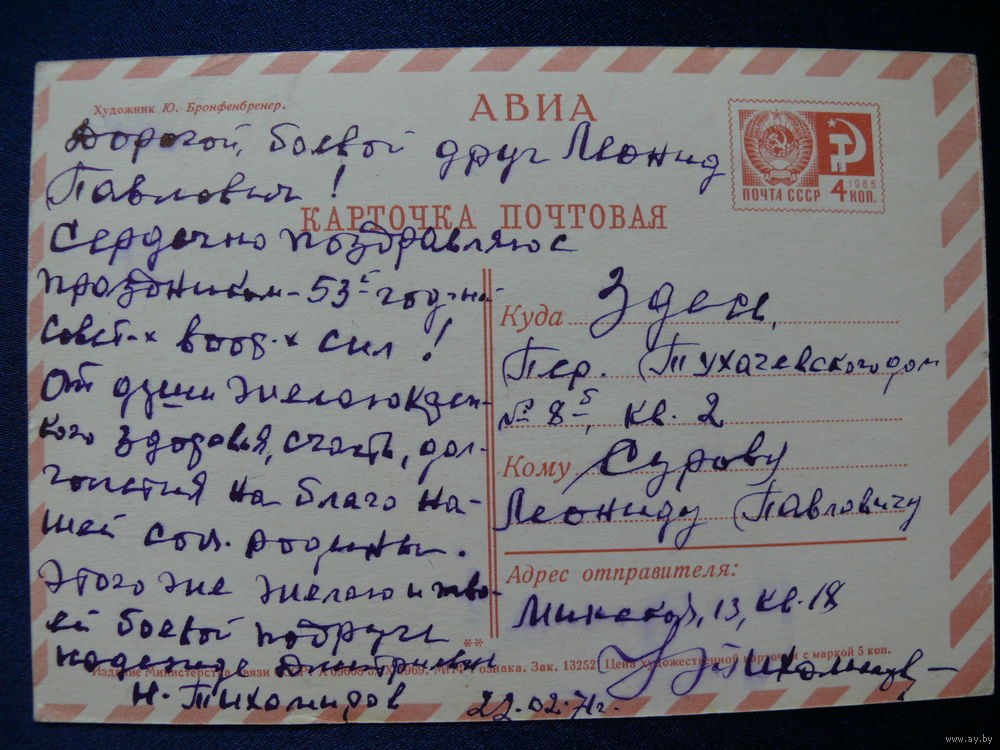 Художник Ю. Бронфенбренер.
АВИА
ПОЧТА СССР
1966
4 КОП.
КАРТОЧКА ПОЧТОВАЯ
Дорогой, боевой друг Леонид
Павлович!
Сердечно поздравляю с
праздником - 53й год-ной
Совет-х воор-х сил!
От души желаю креп-
кого здоровья, счастья, дол-
голетия на благо на-
шей соц. родины.
Этого же желаю и тво-
ей боевой подруге
Надежде Дмитриевне
Н. Тихомиров
22.02.71г.
Куда Здесь,
Пер. Тухачевского дом
№ 8б, кв. 2
Кому Сурову
Леониду Павловичу
Адрес отправителя:
Минская, 13, кв. 18
Тихомиров
**
Издание Министерства связи СССР. 1969. МПФ Гознака. Зак. 13252. Цена художественной карточки с маркой 5 коп.
www.ay.by